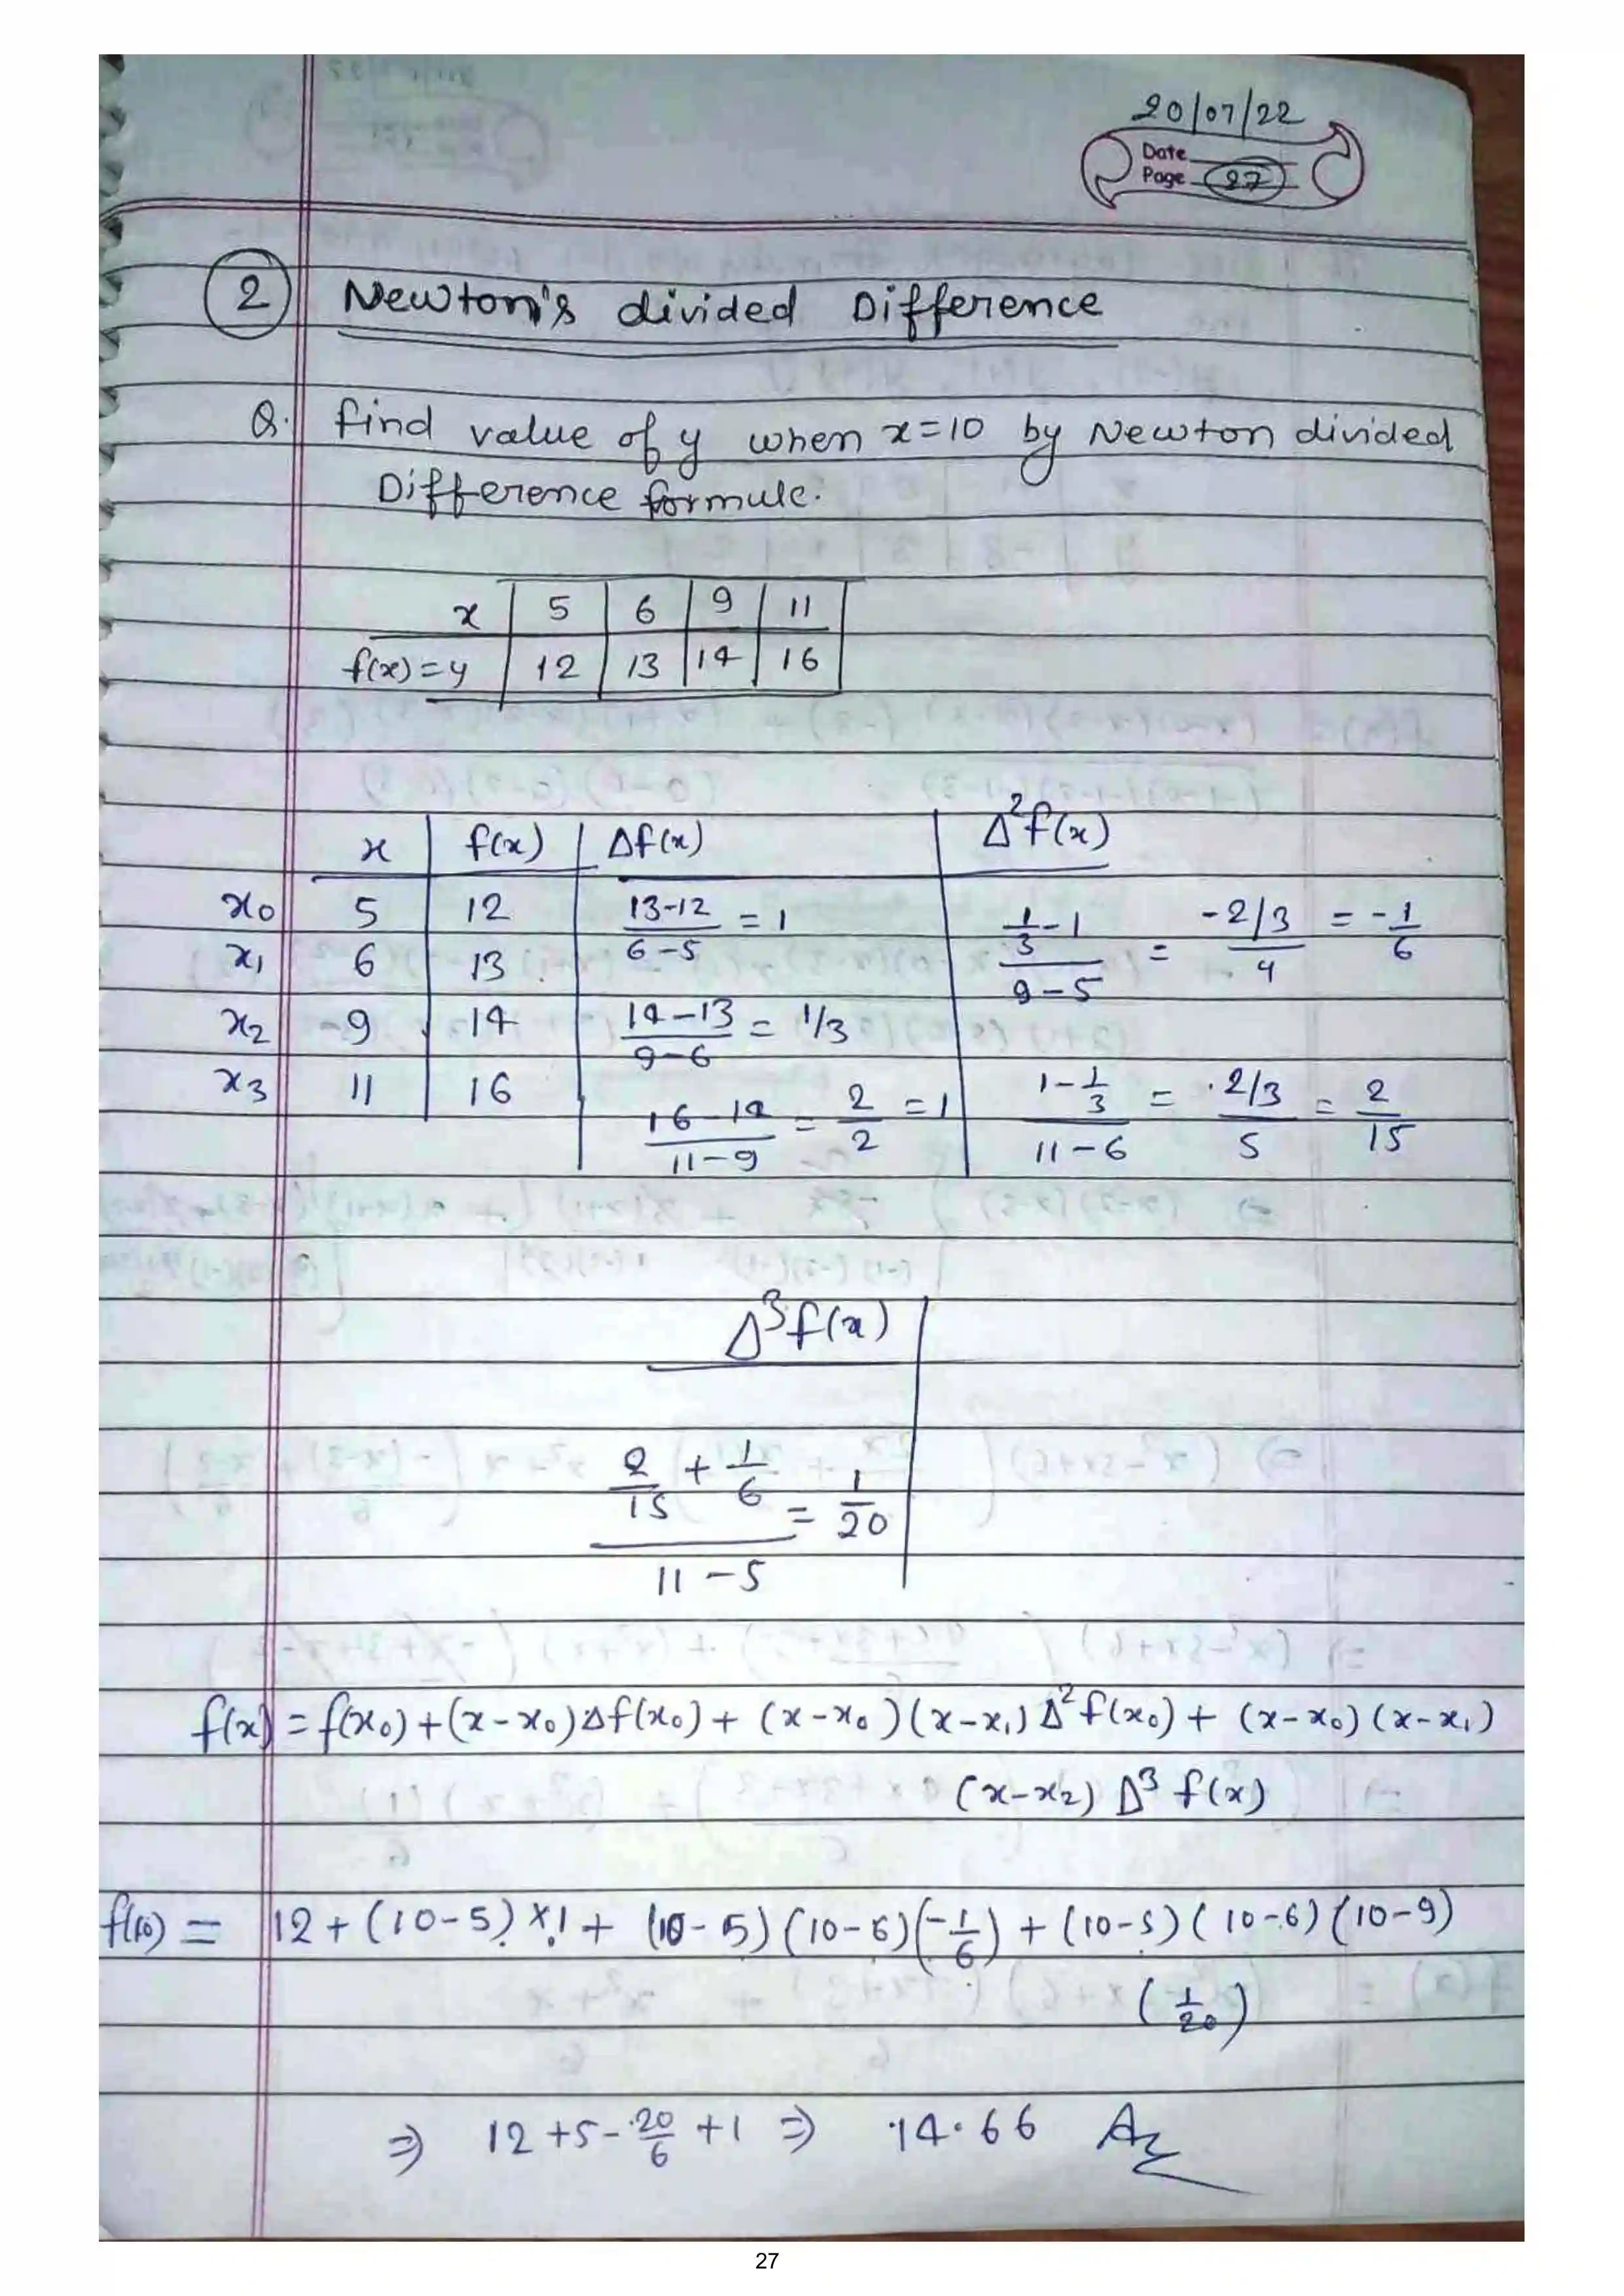 20/07/22
Date
Page 27
2 Newton's divided Difference
Q. find value of y when x=10 by Newton divided
Difference formule.
x | 5 | 6 | 9 | 11
f(x)=y | 12 | 13 | 14 | 16
x | f(x) | Δf(x) | Δ²f(x)
x₀ 5 | 12 | (13-12)/(6-5) = 1 | (1/3-1)/(9-5) = (-2/3)/4 = -1/6
x₁ 6 | 13
x₂ 9 | 14 | (14-13)/(9-6) = 1/3
x₃ 11 | 16 | (16-14)/(11-9) = 2/2 = 1 | (1-1/3)/(11-6) = (2/3)/5 = 2/15
Δ³f(x)
(2/15 + 1/6)/(11-5) = 1/20
f(x) = f(x₀)+(x-x₀)Δf(x₀)+(x-x₀)(x-x₁)Δ²f(x₀)+(x-x₀)(x-x₁)
(x-x₂) Δ³ f(x)
f(10) = 12+(10-5)×1+(10-5)(10-6)(-1/6)+(10-5)(10-6)(10-9)
(1/20)
⇒ 12+5-20/6+1 ⇒ 14.66 Ans
27